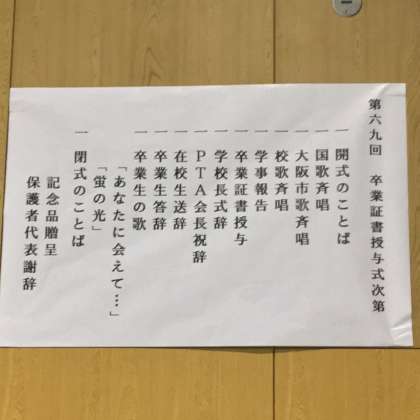 第六九回 卒業証書授与式次第
一 開式のことば
一 国歌斉唱
一 大阪市歌斉唱
一 校歌斉唱
一 学事報告
一 卒業証書授与
一 学校長式辞
一 PTA会長祝辞
一 在校生送辞
一 卒業生答辞
一 卒業生の歌
「あなたに会えて…」
「蛍の光」
一 閉式のことば
記念品贈呈
保護者代表謝辞